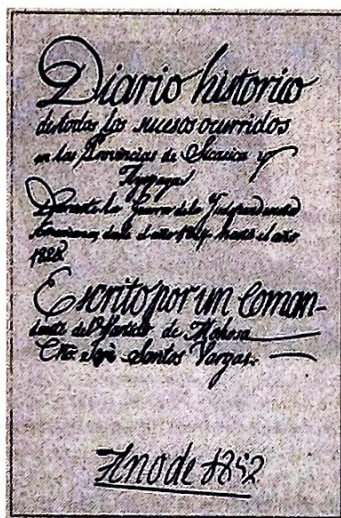 Diario historico
de todos los sucesos ocurridos
en las Provincias de Sicasica y
Ayopaya
Durante la Guerra de la Independencia
Americana, desde el año 1814 hasta el año
1825
Escrito por un Coman-
dante del Partido de Mohosa
Ctno José Santos Vargas.
Año de 1852